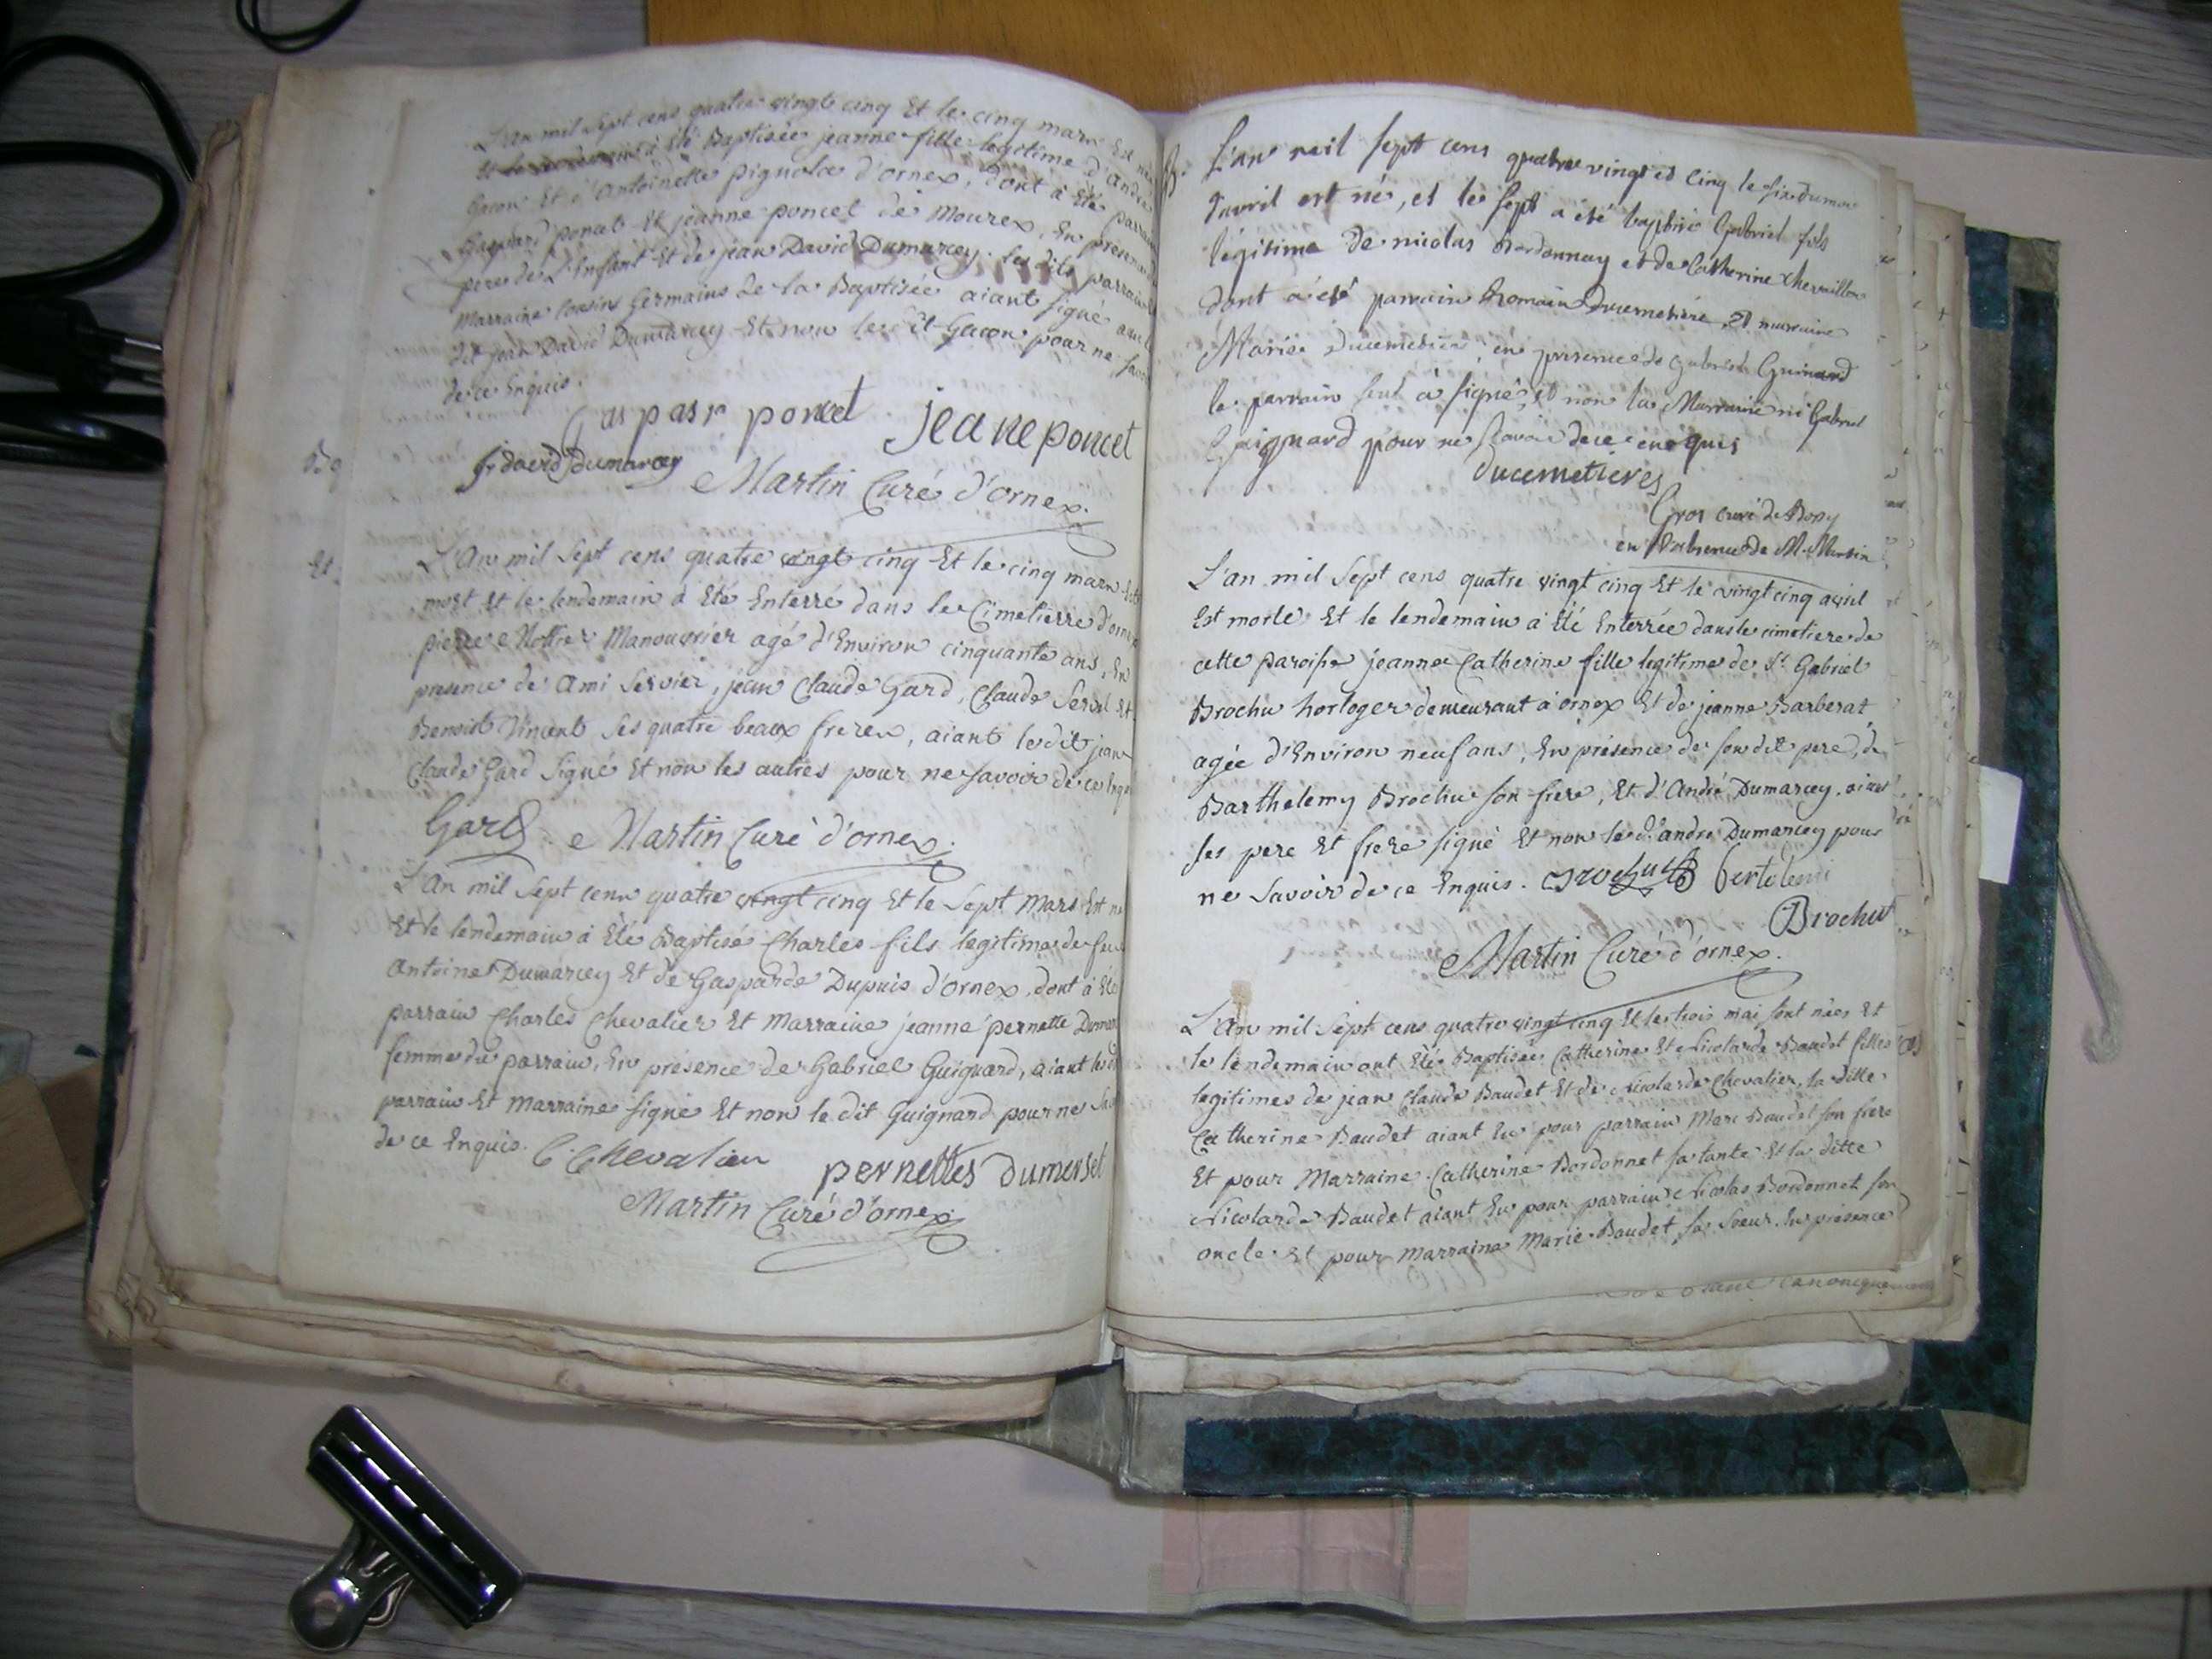 L'An mil sept cens quatre vingt cinq Et le cinq mars Est né
à Eté Baptisée jeanne fille legitime d'André
Gacon Et d'Antoinette pignolet d'ornex, dont à Eté parrain
Gaspard poncet Et jeanne poncet de Mourex, En presence
pere de L'Enfant Et de jean David Dumarcey. les dits parrain
Marraine Cousins Germains de la Baptisée aiant signé avec
dit jean David Dumarcey Et non le dit Gacon pour ne savoir
de ce Enquis.
Gaspasr poncet jeane poncet
jr david dumarcey Martin Curé d'ornex.
L'An mil Sept cens quatre vingt cinq Et le cinq mars Est
mort Et le lendemain à Eté Enterré dans le Cimetierre d'ornex
pierre Manouvrier agé d'Environ cinquante ans, En
presence de Ami Servier, jean Claude Gard, Claude Et
Benoit Vincent ses quatre beaux freres, aiant le dit jean
Claude Gard Signé Et non les autres pour ne savoir de ce Enqui
Gard Martin Curé d'ornex.
L'An mil Sept cens quatre vingt cinq Et le Sept Mars Est né
Et le lendemain à Eté Baptisé Charles fils legitime de feu
Antoine Dumarcey Et de Gasparde Dupuis d'ornex, dont à Eté
parrain Charles Chevalier Et Marraine jeanne pernette
femme du parrain, En présence de Gabriel Guignard, aiant les
parrain Et marraine signé Et non le dit Guignard pour ne
de ce Enquis. C. Chevalier pernettes Dumerset
Martin Curé d'ornex
B. L'an mil sept cens quatre vingt et cinq le six du mois
d'avril est né, et le sept a été baptisé Gabriel fils
légitime de nicolas Bordonnay et de Catherine Chevaillon
dont a été parrain Romain Ducemetière, et marraine
Marie Ducemetière, en presence de Gabriel Guinard
le parrain seul a signé, et non la Marraine ni Gabriel
Guignard pour ne sçavoir de ce enquis
Ducemetieres
Gros curé de Bosy
en l'absence de M. Martin
L'an mil Sept cens quatre vingt cinq Et le vingt cinq avril
Est morte Et le lendemain à Eté Enterrée dans le cimetiere de
cette paroisse jeanne Catherine fille legitime de Sr. Gabriel
Brochu horloger demeurant à ornex Et de jeanne Barberat
agée d'Environ neuf ans, En présence de son dit pere, de
Barthelemy Brochu son frere, Et d'André Dumarcey. aiant
ses pere Et frere signé Et non le dt andré Dumarcey pour
ne Savoir de ce Enquis. Brochut
Brochut
Martin Curé d'ornex.
L'An mil Sept cens quatre vingt cinq Et le trois mai sont nées Et
le lendemain ont Eté Baptisées Catherine Et Nicolarde Baudet filles
legitimes de jean Claude Baudet Et de Nicolarde Chevalier, la ditte
Catherine Baudet aiant Eu pour parrain Marc Baudet son frere
Et pour Marraine Catherine Bordonnet sa tante Et la ditte
Nicolarde Baudet aiant Eu pour parrain Nicolas Bordonnet son
oncle Et pour Marraine Marie Baudet sa soeur. En présence